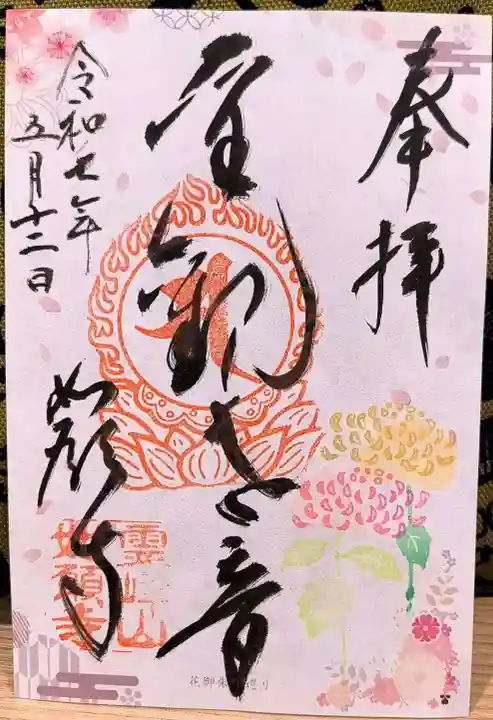 奉拝
聖観世音
如願寺
令和七年
五月十二日
如願寺
花御朱印巡り